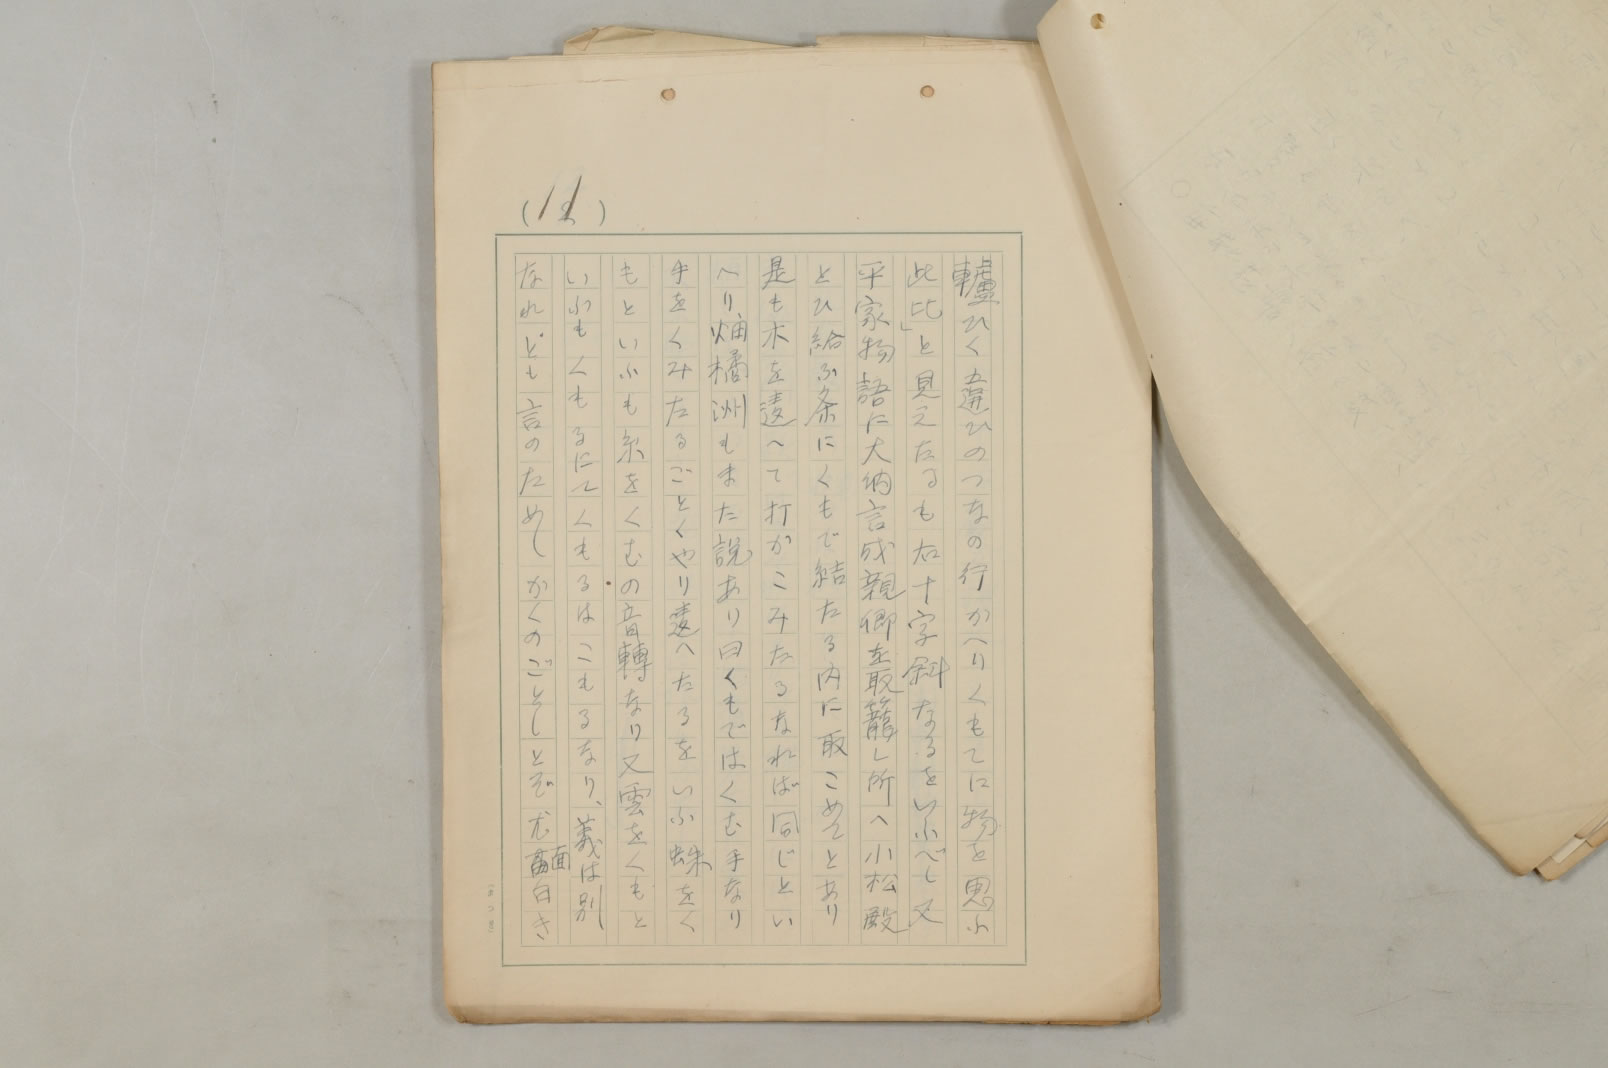 (11)
轤ひく違ひのつなの行かへりくもてに物を思ふ
此比」と見えたるも右十字斜なるをいふべし又
平家物語に大納言成親卿を取籠し所へ小松殿
とひ給ふ条にくもで結たる内に取こめてとあり
是も木を遠へて打かこみたるなれば同じとい
へり、畑橘洲もまた説あり曰くもではくむ手なり
手をくみたるごとくやり遠へたるをいふ蛛をく
もといふも糸をくむの音轉なり又雲をくもと
いふもくもるにてくもるはこもるなり、義は別
なれども言のためしかくのごとしとぞ尤面白き